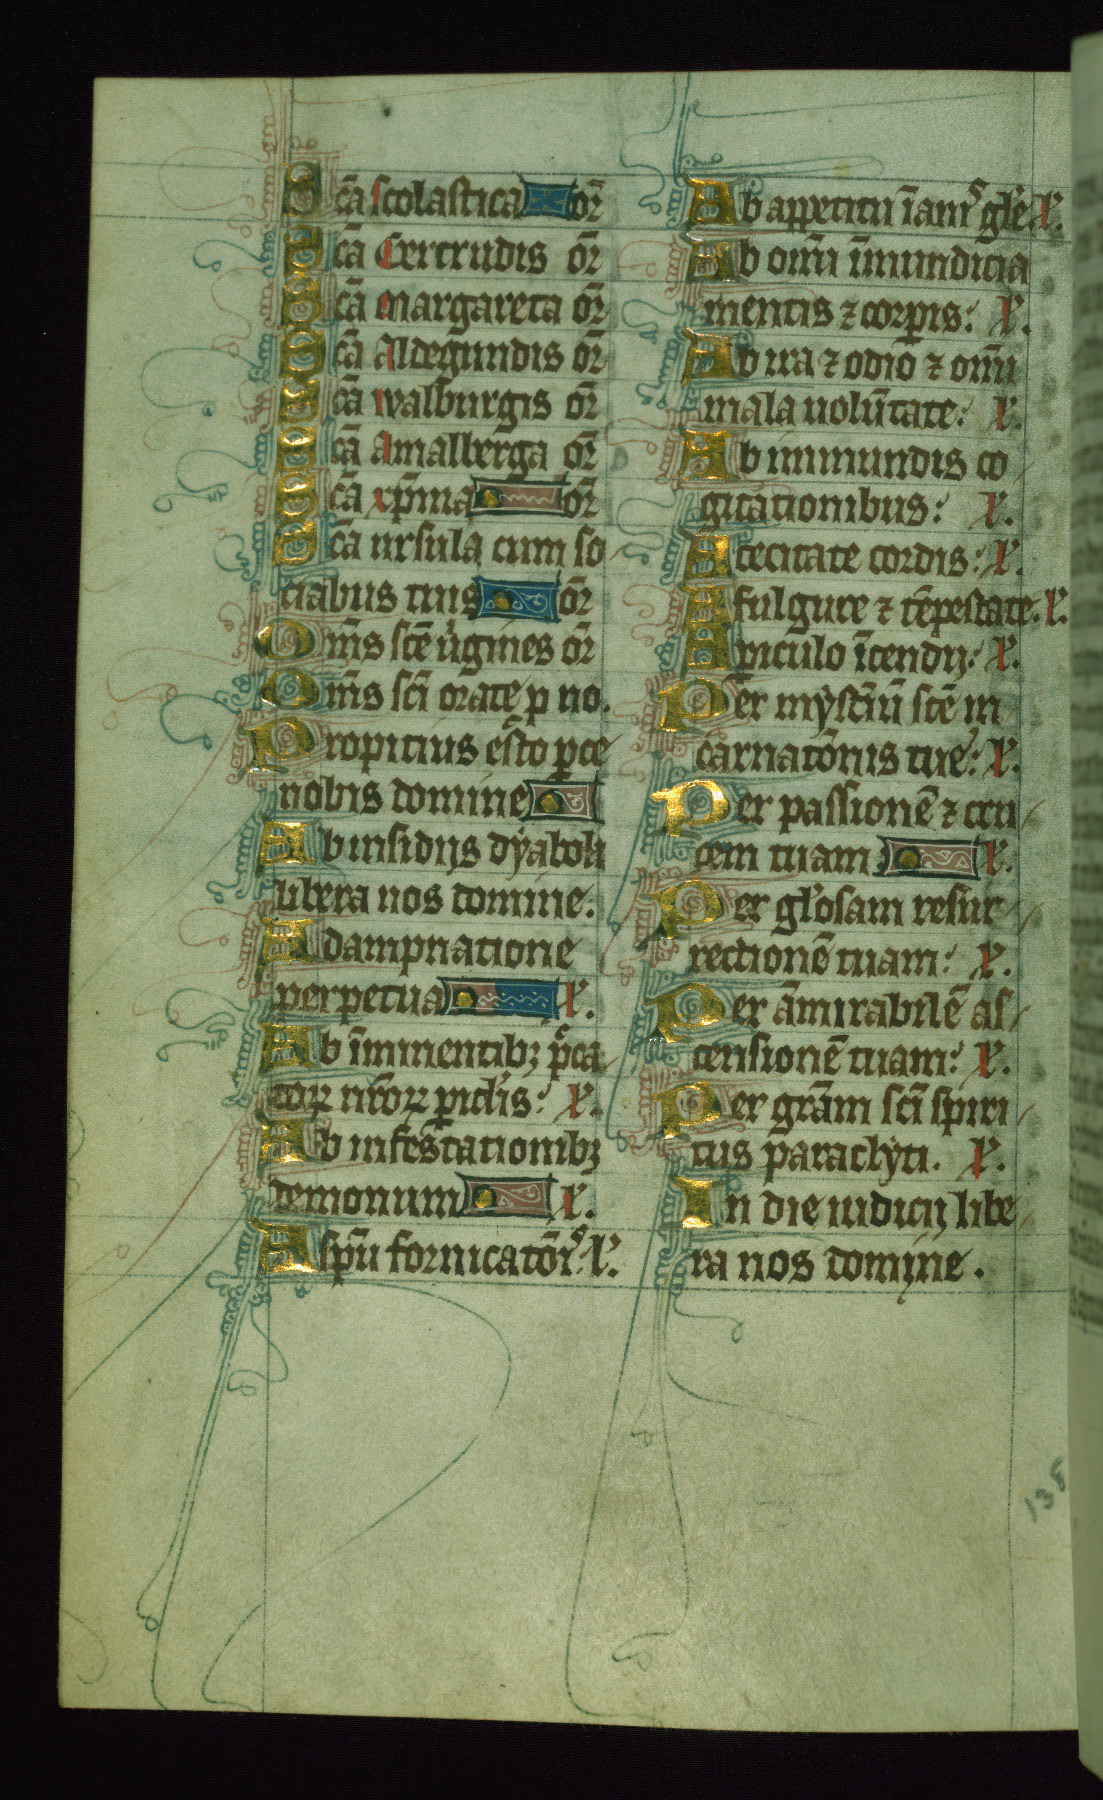 Scā scolastica or̄
Scā Gertrudis or̄
Scā margareta or̄
Scā Aldegundis or̄
Scā walburgis or̄
Scā Amalberga or̄
Scā xp̄ina or̄
Scā ursula cum so
ciabus tuis or̄
Om̄s scē uirgines or̄
Om̄s scī orate p no.
Propitius esto pce
nobis domine
Ab insidijs dyaboli
libera nos domine.
A dampnatione
perpetua l'.
Ab īminentibꝫ pcca
toꝝ nr̄oꝝ piclis: l'.
Ab infestationibꝫ
demonum l'.
A spū fornicatōis: l'.
Ab appetitu īanis gl'e l'.
Ab om̄i īmundicia
mentis ⁊ corpis: l'.
Ab ira ⁊ odio ⁊ om̄i
mala uolūtate: l'.
Ab inmundis co
gitationibus: l'.
A cecitate cordis: l'.
A fulgure ⁊ tēpestate. l'.
A piculo īcendij: l'.
Per mysteriū scē in
carnatōnis tue: l'.
Per passionē ⁊ cru
cem tuam l'.
Per gl'osam resur
rectionē tuam: l'.
Per āmirabilē as
censionē tuam: l'.
Per grām scī spiri
tus paraclyti. l'.
In die iudicij libe
ra nos domine.
138